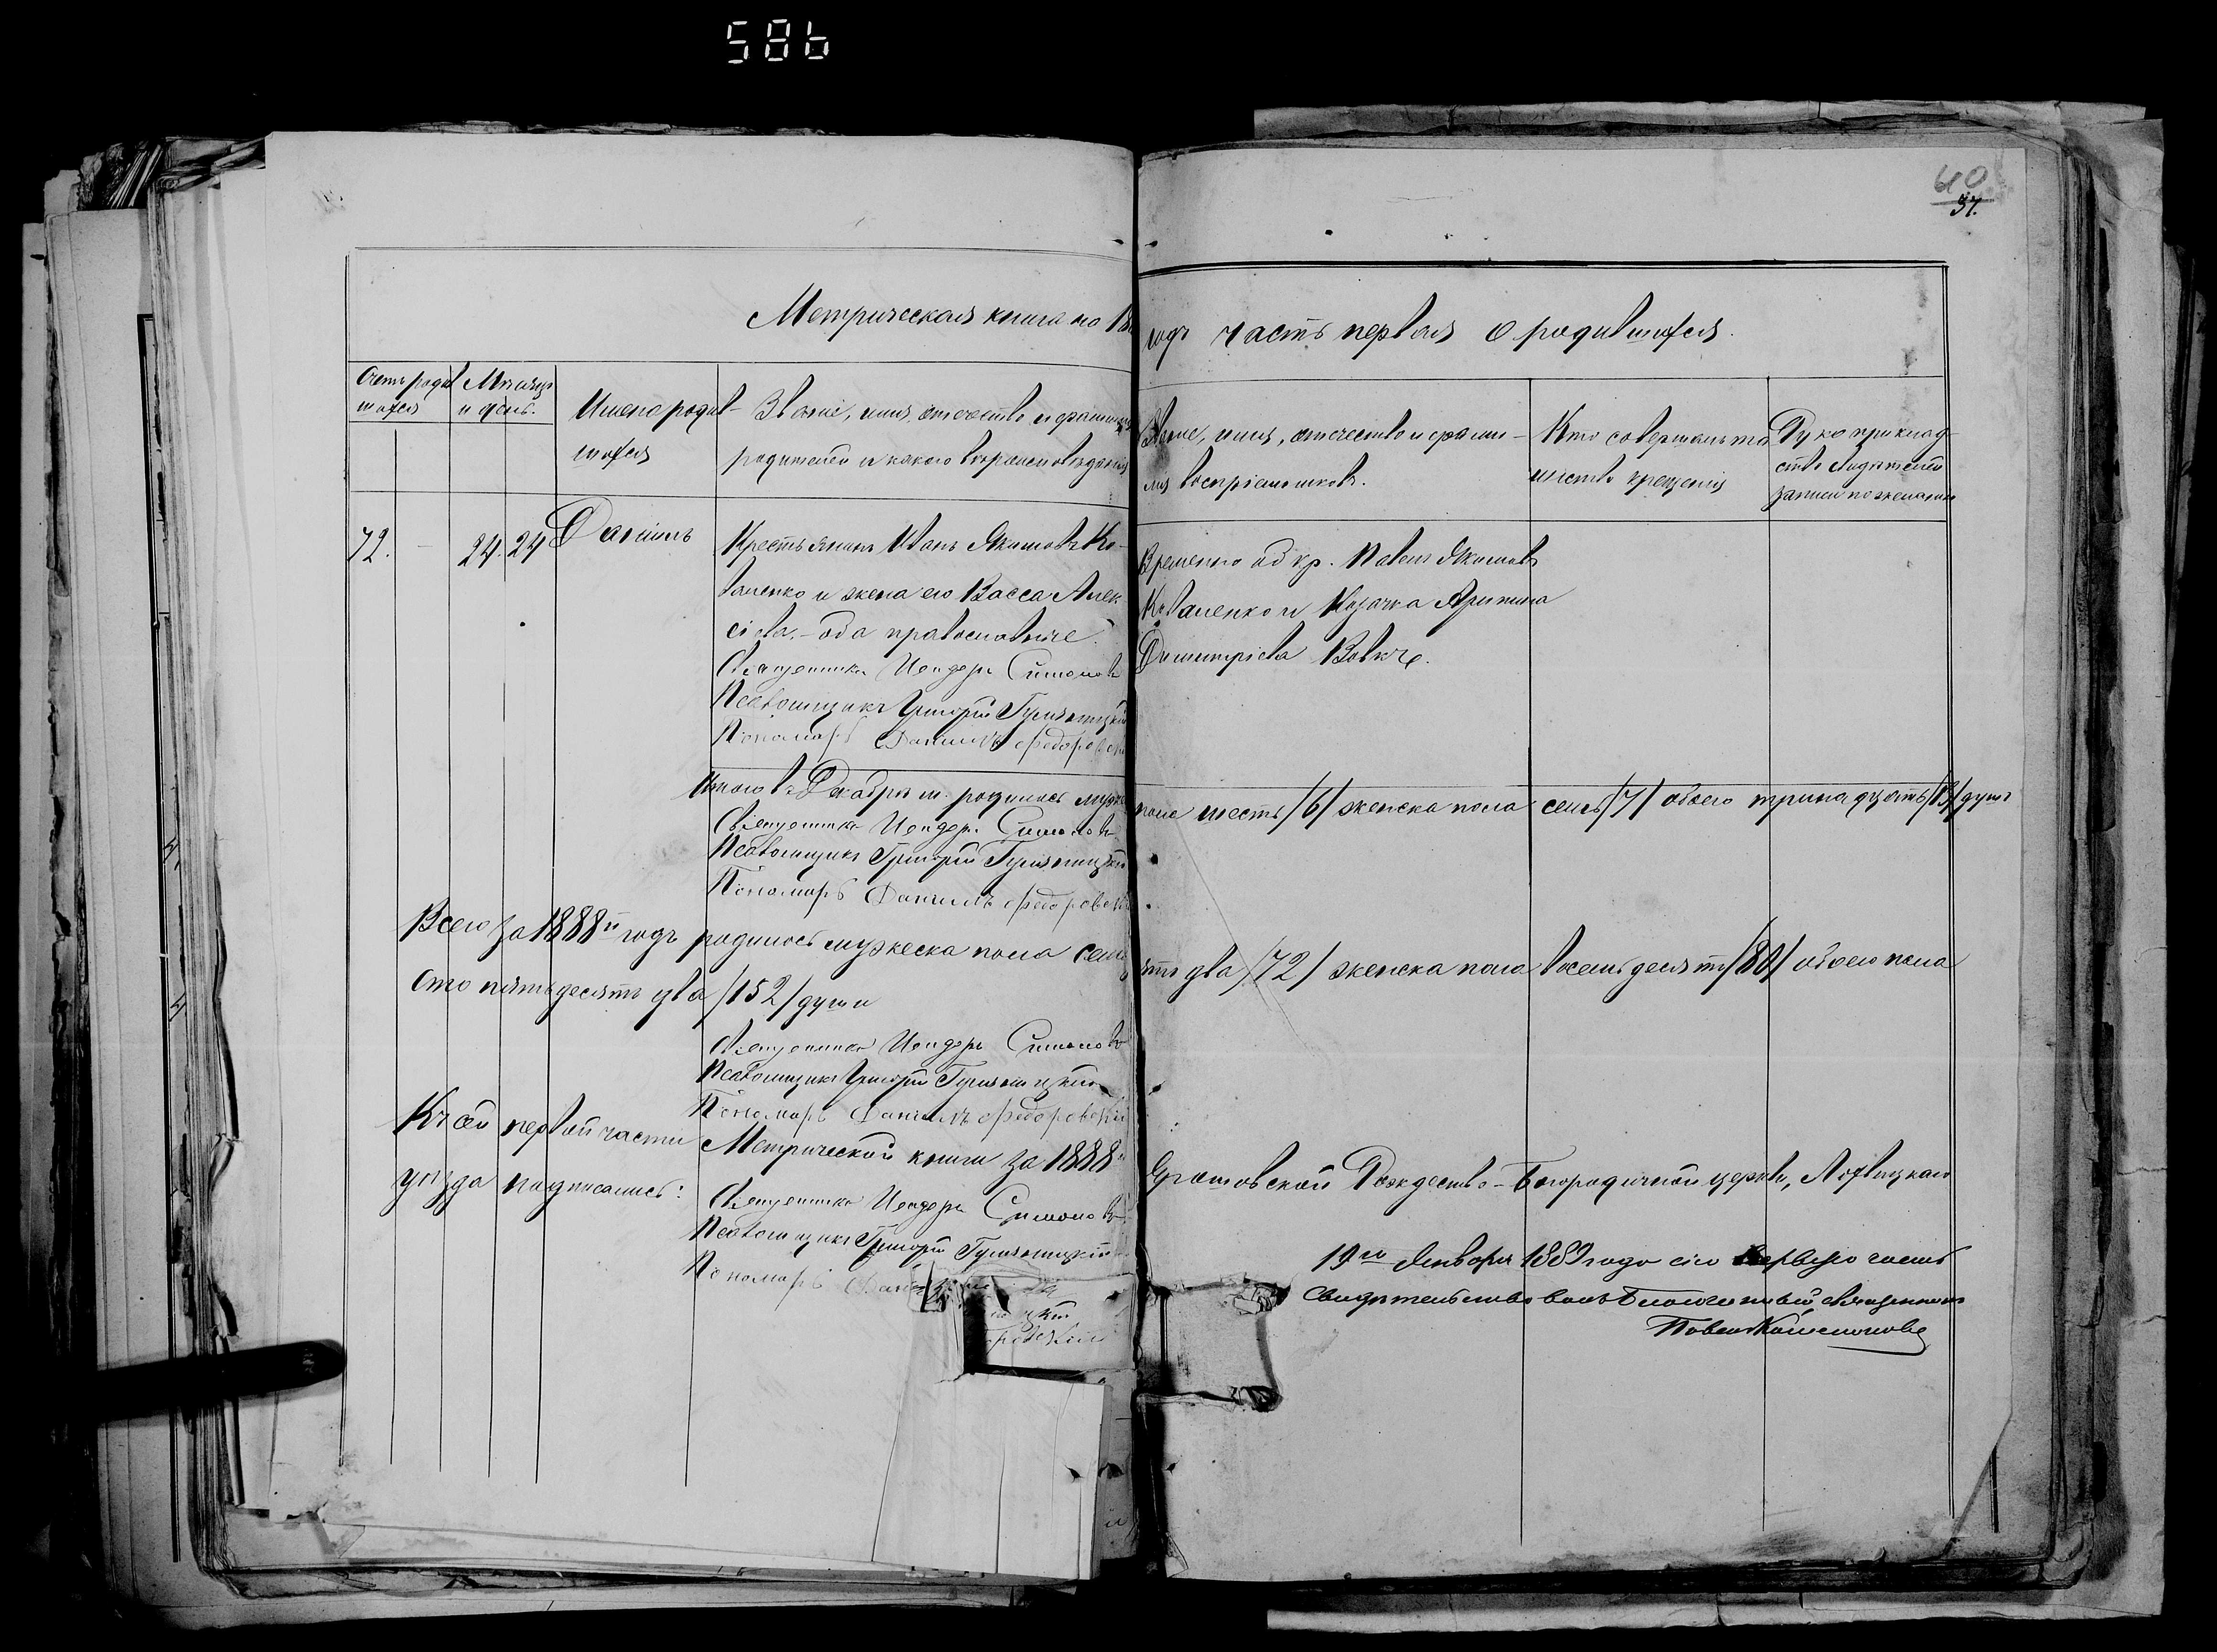 586
40
37.
Метрическая книга на 18
годъ часть первая о родившихся.
Счетъ родив
шихся
Мѣсяцъ
и день.
Имена родив-
шихся
Званіе, имя, отчество и фамилія
родителей и какого вѣроисповѣданія
Званіе, имя, отчество и фами-
лія воспріемниковъ.
Кто совершалъ та
инство крещенія
Рукоприклад
ство свидѣтелей
записи по желанію
72. - 24. 24 Даніилъ
Крестьянинъ Иванъ Якимовъ Ко-
валенко и жена его Васса Алек
сіева. - оба православные.
Священникъ Симонов
Псаломщикъ Григорій
Пономарь Даніилъ Федоровскій
Временно об кр. Павелъ Якимовъ
Коваленко и Козачка Агрипина
Димитріева Вовкъ.
Итого въ Декабрѣ м. родилось мужс
пола шесть /6/ женска пола семь /7/ обоего тринадцать /13/ душъ
Священникъ Симонов
Псаломщикъ Григорій
Пономарь Даніилъ Федоровскій
Всего за 1888й годъ родилось мужеска пола семь
ятъ два /72/ женска пола восемьдесятъ /80/ обоего пола
сто пятьдесятъ два /152/ души
Священникъ Симонов
Псаломщикъ Григорій
Пономарь Даніилъ Федоровскій
Къ сей первой части Метрической книги за 1888й
Рождество-Богородичной церкви, Лохвицкаго
уѣзда подписались:
Священникъ Симонов
Псаломщикъ Григорій
Пономарь
19го Января 1889 года сію первую часть
свидѣтельствовалъ Благочинный, священникъ
Павелъ